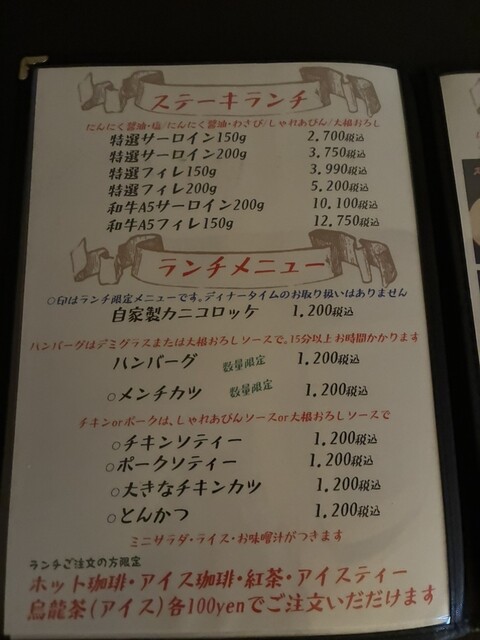 ステーキランチ
にんにく醤油・塩/にんにく醤油・わさび/しゃれあぴん/大根おろし
特選サーロイン150g 2,700税込
特選サーロイン200g 3,750税込
特選フィレ150g 3,990税込
特選フィレ200g 5,200税込
和牛A5サーロイン200g 10,100税込
和牛A5フィレ150g 12,750税込
ランチメニュー
○印はランチ限定メニューです。ディナータイムのお取り扱いはありません
自家製カニコロッケ 1,200税込
ハンバーグはデミグラスまたは大根おろしソースで。15分以上お時間かかります
ハンバーグ 数量限定 1,200税込
○メンチカツ 数量限定 1,200税込
チキンorポークは、しゃれあぴんソースor大根おろしソースで
○チキンソティー 1,200税込
○ポークソティー 1,200税込
○大きなチキンカツ 1,200税込
○とんかつ 1,200税込
ミニサラダ・ライス・お味噌汁がつきます
ランチご注文の方限定
ホット珈琲・アイス珈琲・紅茶・アイスティー
烏龍茶(アイス)各100yenでご注文いただけます